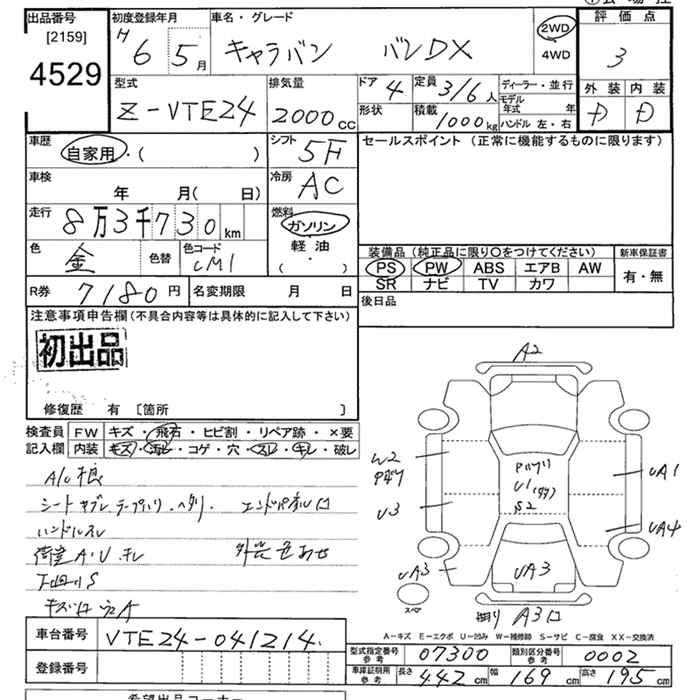 出品番号
[2159]
4529
初度登録年月
H 6 5月
車名・グレード
キャラバン バンDX
2WD
4WD
評価点
3
外装 内装
D D
型式
Z-VTE24
排気量
2000cc
ドア 4
形状
定員 3/6人
積載 1000kg
ディーラー・並行
モデル年式 年
ハンドル 左・右
車歴
自家用・( )
シフト 5F
セールスポイント (正常に機能するものに限ります)
車検
年 月( 日)
冷房 AC
走行
8万3千730km
燃料
ガソリン
軽油
( ・ )
色 金
色替
色コード
CM1
装備品 (純正品に限り○をつけてください)
PS PW ABS エアB AW
SR ナビ TV カワ
新車保証書
有・無
R券 7180円
名変期限 月 日
後日品
注意事項申告欄(不具合内容等は具体的に記入して下さい)
初出品
修復歴 有 〔箇所 〕
検査員記入欄
FW キズ・飛石・ヒビ割・リペア跡・×要
内装 キズ・汚レ・コゲ・穴・スレ・キレ・破レ
シート
ハンドルスレ
A2
W2
U3
UA1
UA4
UA3
UA3
S2
スペア
A3
A-キズ E-エクボ U-凹み W-補修跡 S-サビ C-腐食 XX-交換済
車台番号 VTE24-041214
登録番号
型式指定番号 参考 07300
類別区分番号 参考 0002
車庫証明用 参考 長さ 442cm 幅 169cm 高さ 195cm
希望出品コーナー